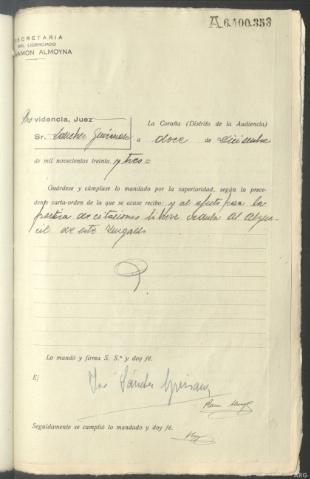 A6.400.353
SECRETARIA
DEL LICENCIADO
RAMON ALMOYNA
Providencia, Juez
La Coruña (Distrito de la Audiencia)
Sr. Sánchez a doce de Diciembre
de mil novecientos treinta y tres =
Guárdese y cúmplase lo mandado por la superioridad, según la prece-
dente carta-orden de la que se acuse recibo; y al efecto para la
práctica de citaciones líbrese cédula al Algua-
cil de este Juzgado
Lo mandó y firma S. S.ª y doy fé.
E/
José Sánchez
Seguidamente se cumplió lo mandado y doy fé.
ARG